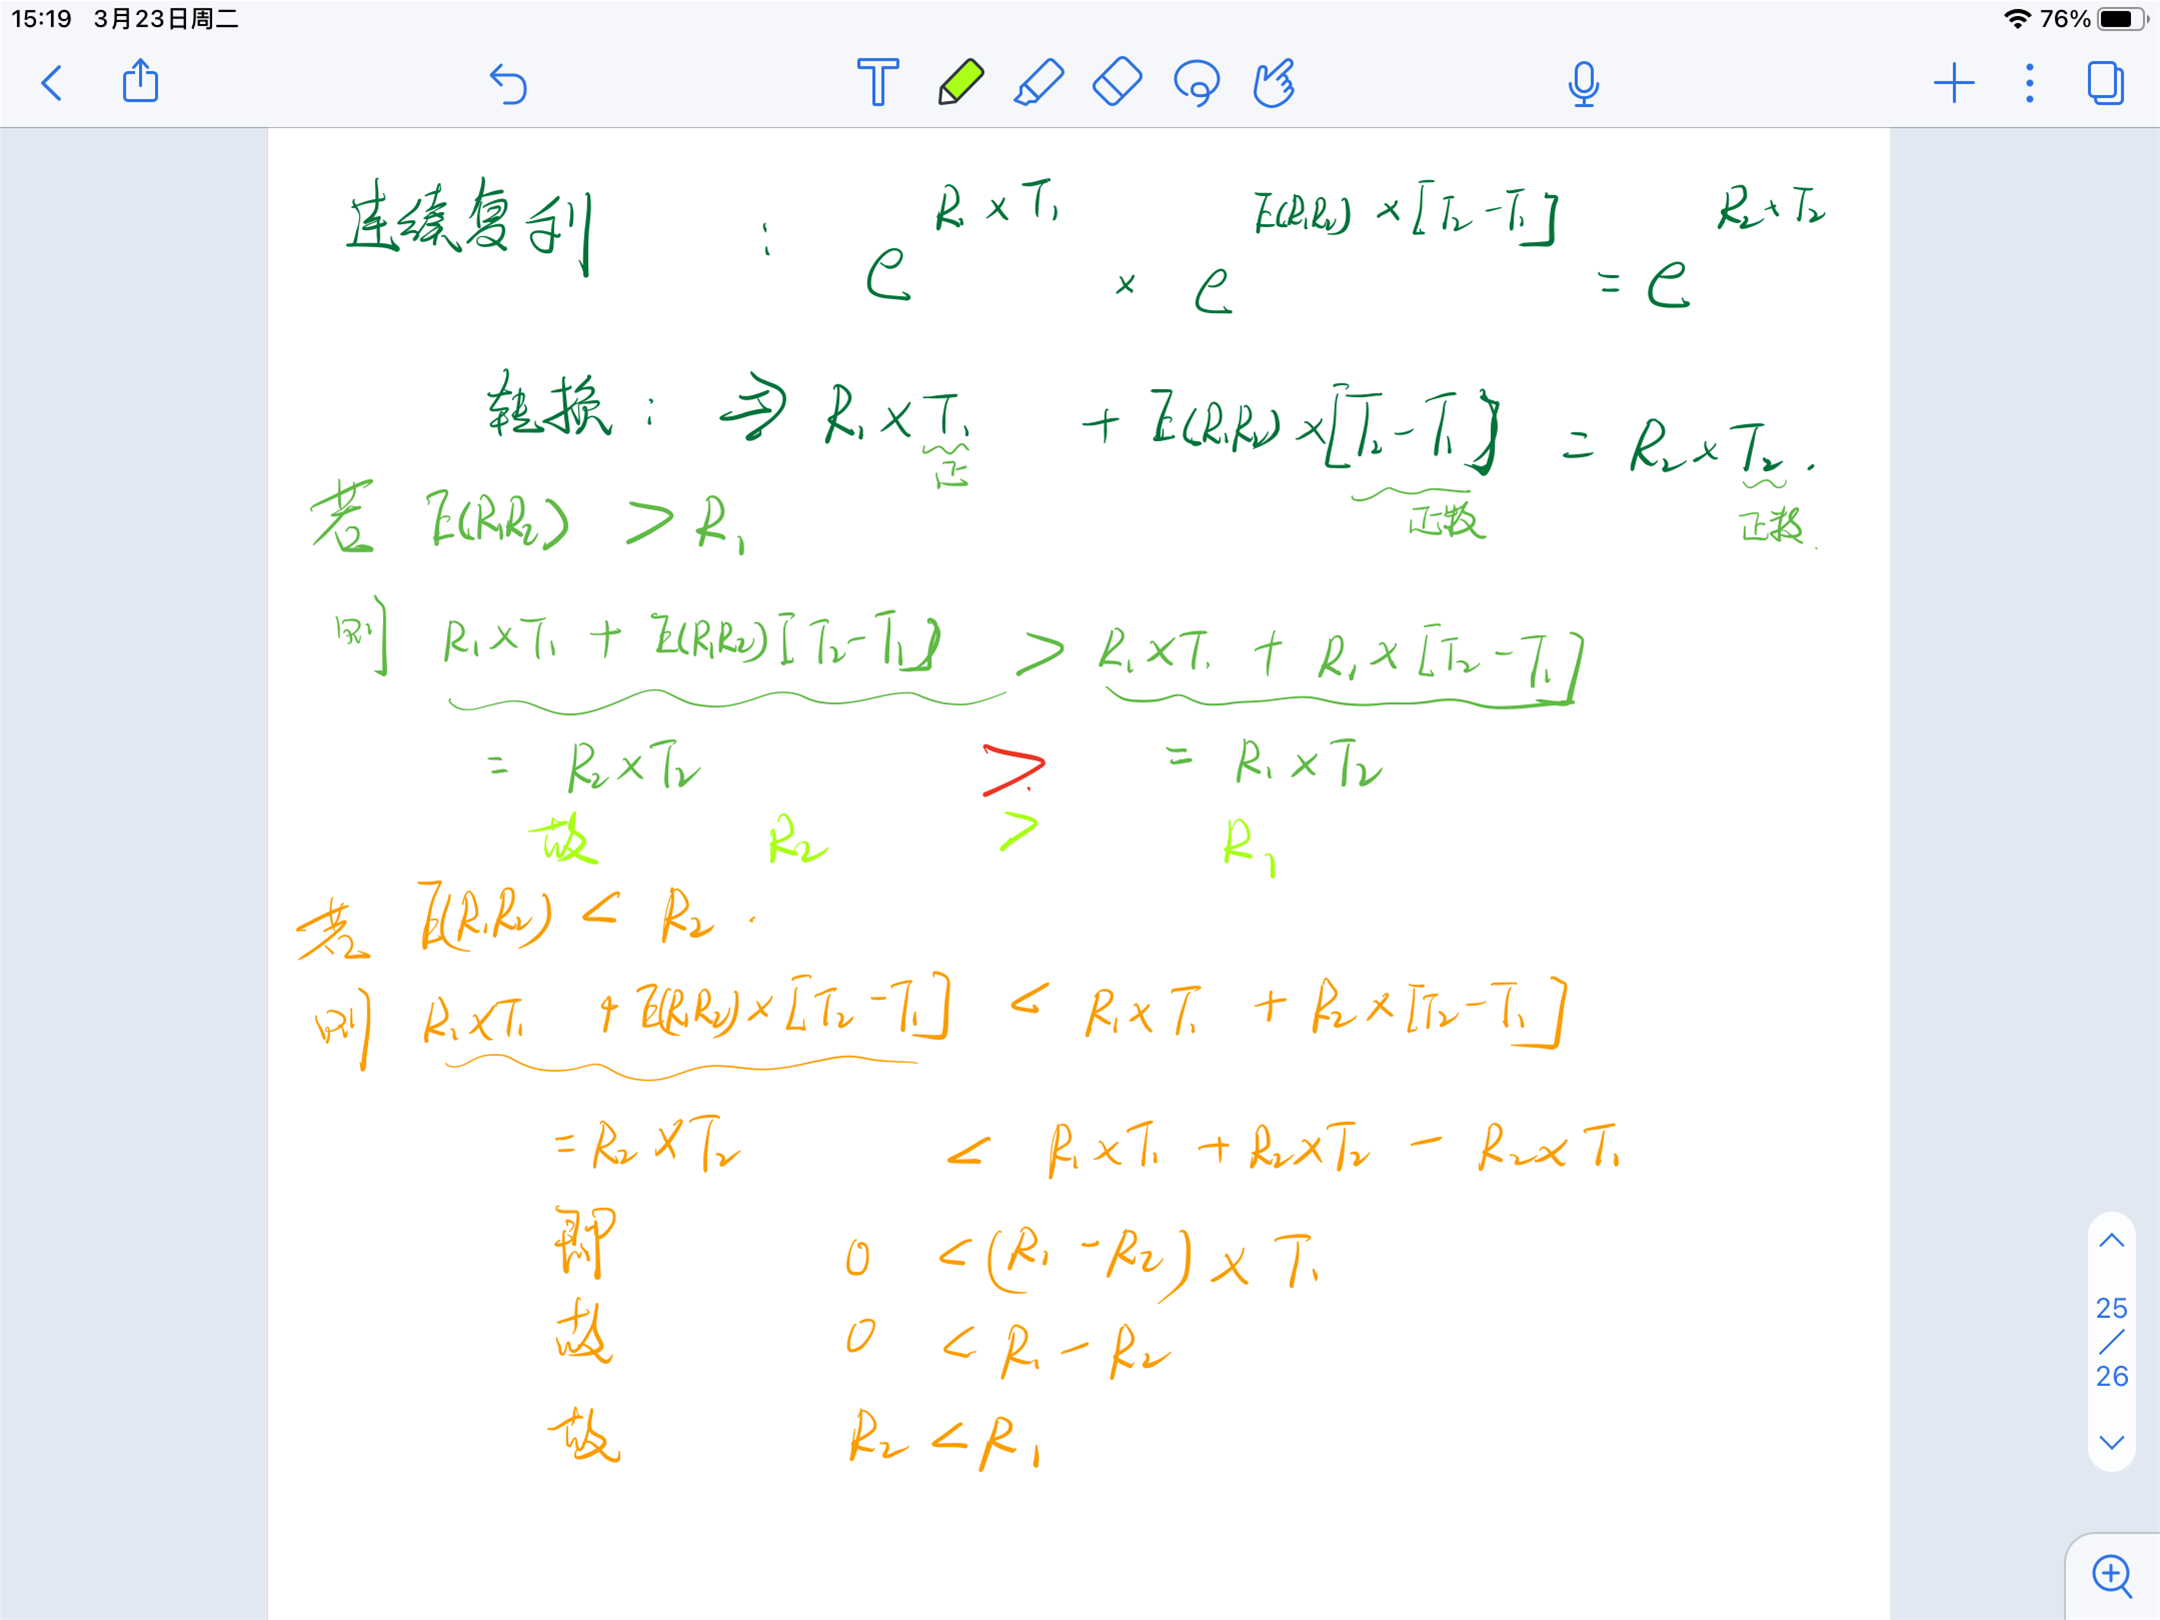 15:19 3月23日周二
76%
连续复利 : e^{R₁×T₁} × e^{E(R₁R₂)×[T₂-T₁]} = e^{R₂×T₂}
转换: ⇒ R₁×T₁ + E(R₁R₂)×[T₂-T₁] = R₂×T₂.
正 正数 正数.
若 E(R₁R₂) > R₁
则 R₁×T₁ + E(R₁R₂)[T₂-T₁] > R₁×T₁ + R₁×[T₂-T₁]
= R₂×T₂ > = R₁×T₂
故 R₂ > R₁
若 E(R₁R₂) < R₂.
则 R₁×T₁ + E(R₁R₂)×[T₂-T₁] < R₁×T₁ + R₂×[T₂-T₁]
= R₂×T₂ < R₁×T₁ + R₂×T₂ - R₂×T₁
即 0 < (R₁-R₂)×T₁
故 0 < R₁-R₂
故 R₂ < R₁
25
/
26